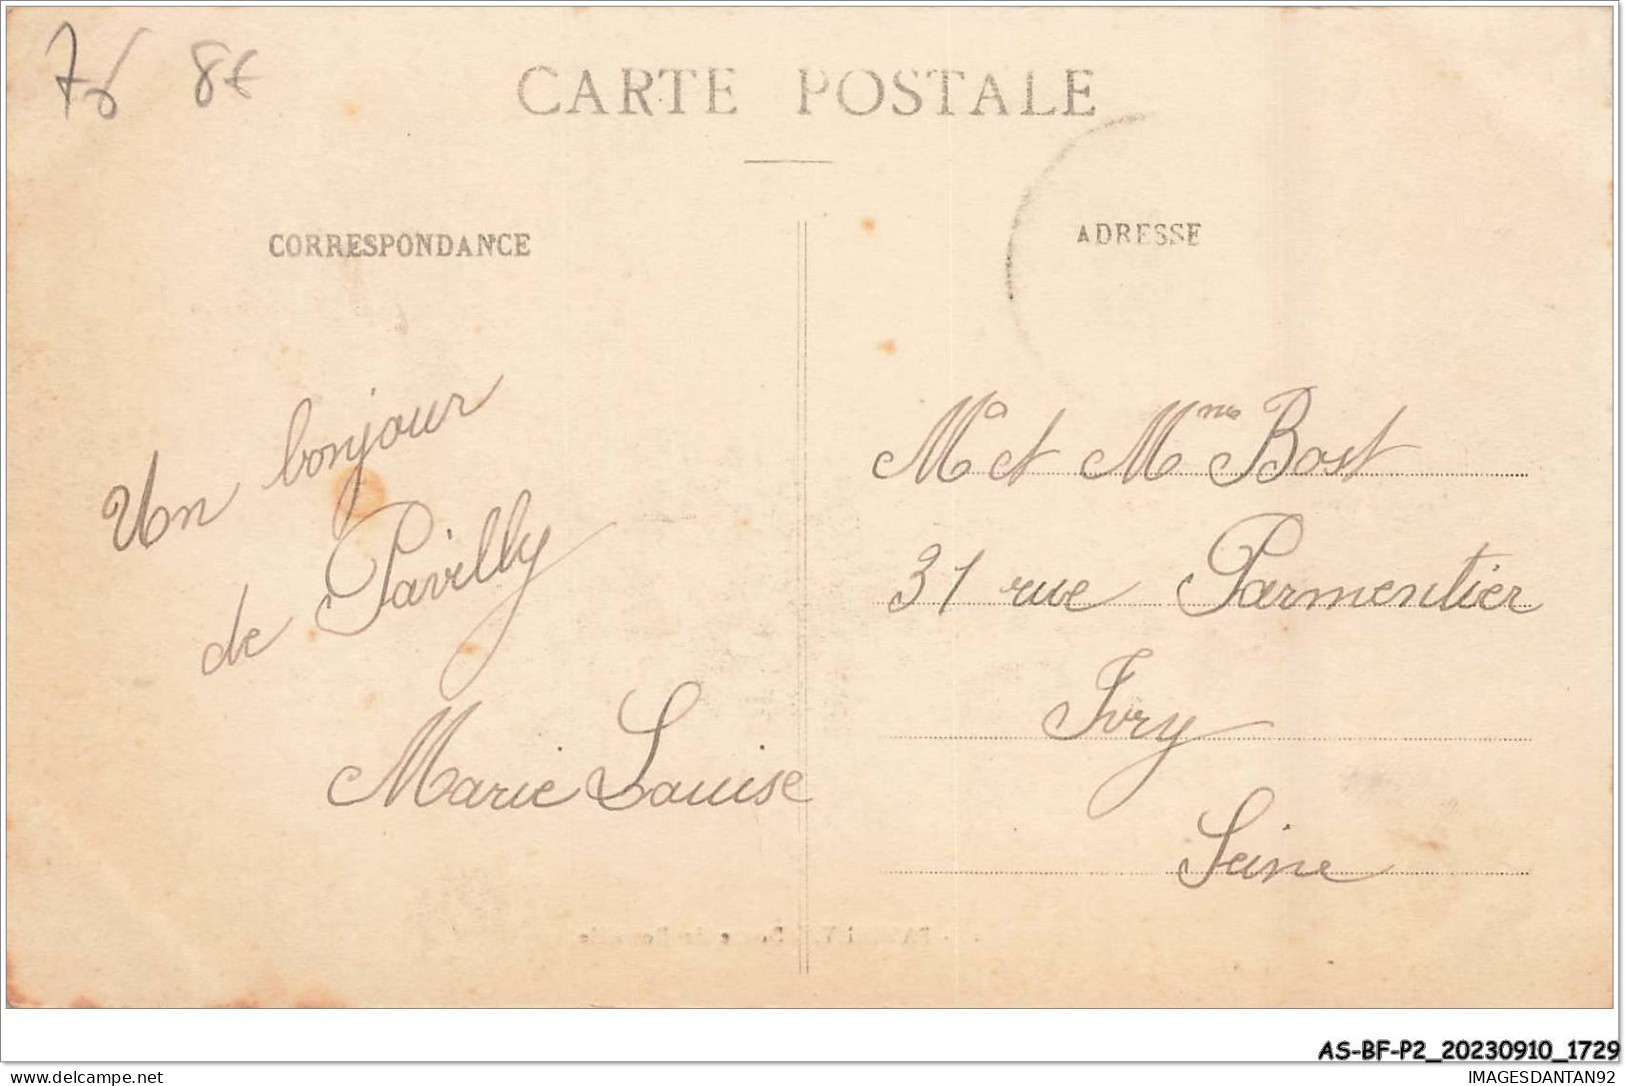 76 8€
CARTE POSTALE
CORRESPONDANCE
ADRESSE
Un bonjour
de Pavilly
Marie Louise
Mr et Mme Bost
31 rue Parmentier
Ivry
Seine
AS-BF-P2_20230910_1729
delcampe.net
IMAGESDANTAN92